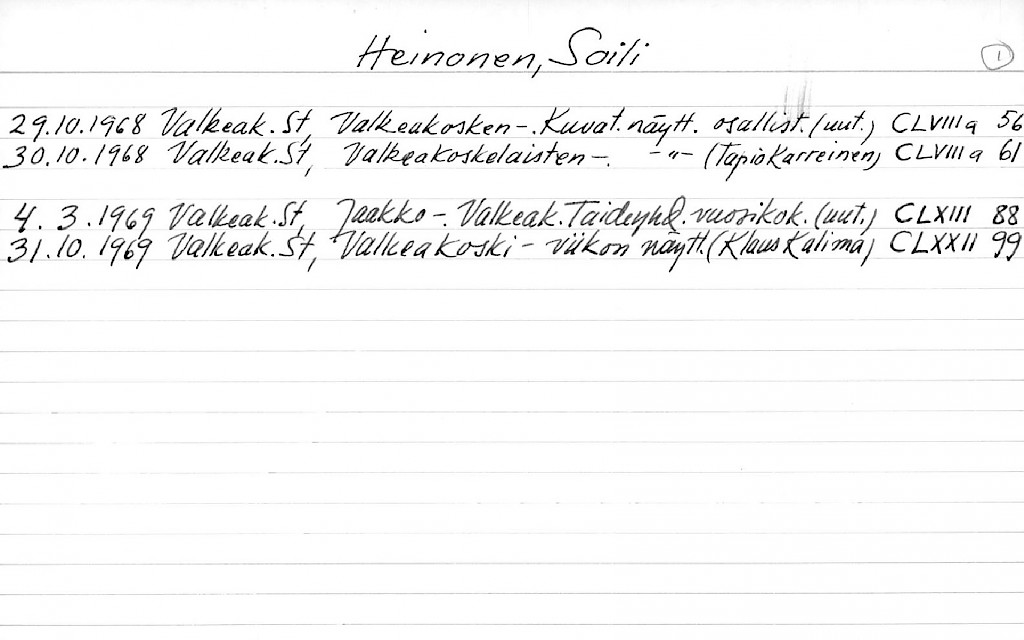 Heinonen, Soili 1
29.10.1968 Valkeak. St, Valkeakosken-. Kuvat. näytt. osallist. (uut.) CLVIII a 56
30.10.1968 Valkeak. St, Valkeakoskelaisten-. -"- (Tapio Karreinen) CLVIII a 61
4. 3. 1969 Valkeak. St, Jaakko-. Valkeak. Taideyhd. vuosikok. (uut.) CLXIII 88
31.10. 1969 Valkeak. St, Valkeakoski - viikon näytt. (Klaus Kalima) CLXXII 99